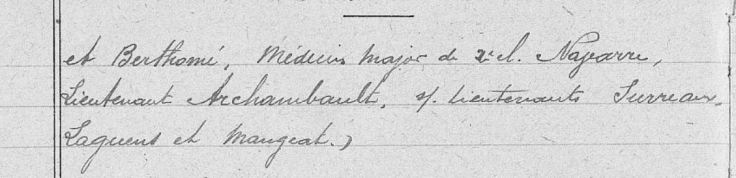 et Berthomé, Médecin Major de 2e cl. Navarre,
Lieutenant Archambault, s/ Lieutenants Surreaux,
Laguens et Mangeat.)